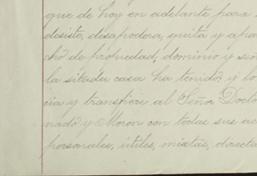 que de hoy en adelante para
desiste, desapodera, quita y apar
cho de propiedad, dominio y señ
la situada casa ha tenido y los
cia y transfiere al Señor Docto
nado y Moron con todas sus ac
personales, útiles, mixtas, directa